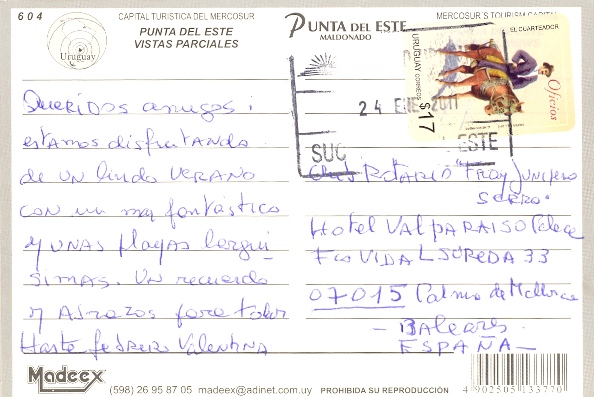 604
CAPITAL TURISTICA DEL MERCOSUR
PUNTA DEL ESTE
VISTAS PARCIALES
Uruguay
PUNTA DEL ESTE
MALDONADO
MERCOSUR'S TOURISM CAPITAL
EL CUARTEADOR
URUGUAY CORREOS
Oficios
$17
24 ENE 2011
SUC
ESTE
Queridos amigos:
estamos disfrutando
de un lindo VERANO
con un mar fantástico
y UNAS playas
simas. Un recuerdo
y Abrazos para todos
Hasta febrero Valentina
Club ROTARIO "Fray Junipero
SERRA.
HOTEL VALPARAISO Palace
Fco VIDAL SUREDA 33
07015 Palma de Mallorca
- BALEARES.
ESPAÑA -
Madeex
(598) 26 95 87 05 madeex@adinet.com.uy PROHIBIDA SU REPRODUCCIÓN
4902505133770